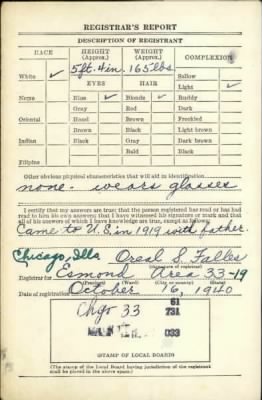 REGISTRAR'S REPORT
DESCRIPTION OF REGISTRANT
RACE HEIGHT (Approx.) WEIGHT (Approx.) COMPLEXION
5ft. 4in. 165 lbs. Sallow
White ✓ EYES HAIR Light ✓
Negro Blue ✓ Blonde ✓ Ruddy
Gray Red Dark
Oriental Hazel Brown Freckled
Brown Black Light brown
Indian Black Gray Dark brown
Bald Black
Filipino
Other obvious physical characteristics that will aid in identification
none - wears glasses
I certify that my answers are true; that the person registered has read or has had
read to him his own answers; that I have witnessed his signature or mark and that
all of his answers of which I have knowledge are true, except as follows:
Came to U.S. in 1919 with father.
Chicago, Ills Oreal S. Falles
(Signature of registrar)
Registrar for Esmond Area 33-19
(Precinct) (Ward) (City or county) (State)
Date of registration October 16, 1940
61
Chgo 33 731
033
STAMP OF LOCAL BOARD
(The stamp of the Local Board having jurisdiction of the registrant
shall be placed in the above space.)